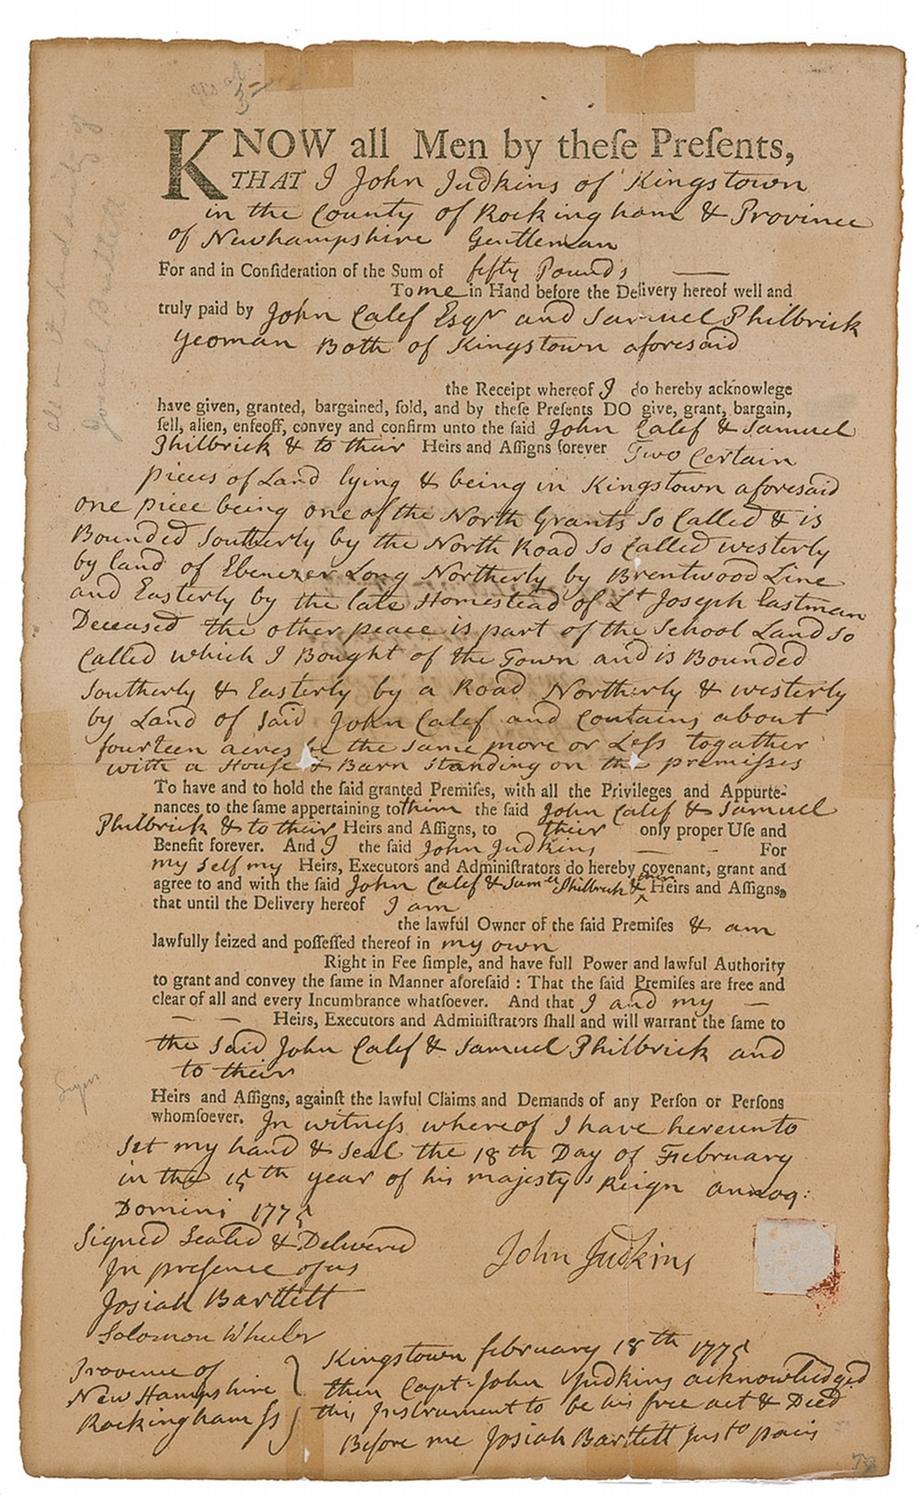 KNOW all Men by theſe Preſents,
THAT I John Judkins of Kingstown
in the County of Rockingham & Province
of Newhampshire Gentleman
For and in Conſideration of the Sum of fifty Pounds
To me in Hand before the Delivery hereof well and
truly paid by John Calef Esqr and Samuel Philbrick
yeoman Both of Kingstown aforesaid
the Receipt whereof I do hereby acknowlege
have given, granted, bargained, ſold, and by theſe Preſents DO give, grant, bargain,
ſell, alien, enfeoff, convey and confirm unto the ſaid John Calef & Samuel
Philbrick & to their Heirs and Aſſigns forever Two Certain
pieces of Land lying & being in Kingstown aforesaid
one piece being one of the North Grants So Called & is
Bounded Southerly by the North Road So Called westerly
by land of Ebenezer Long Northerly by Brentwood Line
and Easterly by the late Homestead of Lt Joseph Eastman
Deceased the other peace is part of the School Land So
Called which I Bought of the Town and is Bounded
Southerly & Easterly by a Road Northerly & westerly
by Land of Said John Calef and Contains about
fourteen acres be the same more or Less together
with a House & Barn Standing on the premisses
To have and to hold the ſaid granted Premiſes, with all the Privileges and Appurte-
nances to the ſame appertaining to them the ſaid John Calef & Samuel
Philbrick & to their Heirs and Aſſigns, to their only proper Uſe and
Benefit forever. And I the ſaid John Judkins For
my self my Heirs, Executors and Adminiſtrators do hereby covenant, grant and
agree to and with the ſaid John Calef & Samel Philbrick & their Heirs and Aſſigns,
that until the Delivery hereof I am
the lawful Owner of the ſaid Premiſes & am
lawfully ſeized and poſſeſſed thereof in my own
Right in Fee ſimple, and have full Power and lawful Authority
to grant and convey the ſame in Manner aforeſaid : That the ſaid Premiſes are free and
clear of all and every Incumbrance whatſoever. And that I and my —
— — Heirs, Executors and Adminiſtrators ſhall and will warrant the ſame to
the Said John Calef & Samuel Philbrick and
to their
Heirs and Aſſigns, againſt the lawful Claims and Demands of any Perſon or Perſons
whomſoever. In witness whereof I have hereunto
Set my hand & Seal the 18th Day of February
in the 15th year of his majesty's Reign annoq:
Domini 1775
Signed Sealed & Delivered
In presence of us
John Judkins
Josiah Bartlett
Solomon Wheeler
Province of
New Hampshire
Rockingham Ss
Kingstown february 18th 1775
then Capt. John Judkins acknowledged
this Instrument to be his free act & Deed
Before me Josiah Bartlett Just o pacis
78